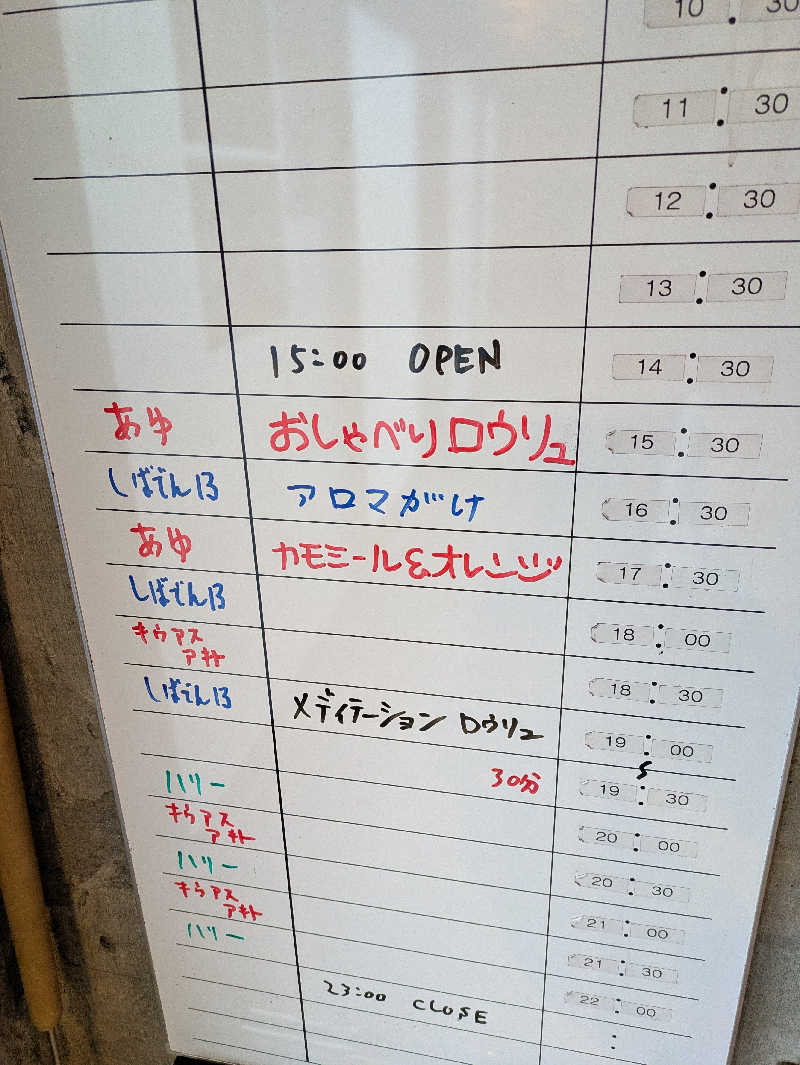 10:30
11:30
12:30
13:30
15:00 OPEN 14:30
あゆ おしゃべりロウリュ 15:30
アロマがけ 16:30
あゆ カモミール&オレンジ 17:30
18:00
キウアス
アキト 18:30
メディテーション ロウリュ 19:00
30分 19:30
ハリー 20:00
キウアス
アキト 20:30
ハリー 21:00
キウアス
アキト 21:30
ハリー 22:00
23:00 CLOSE :